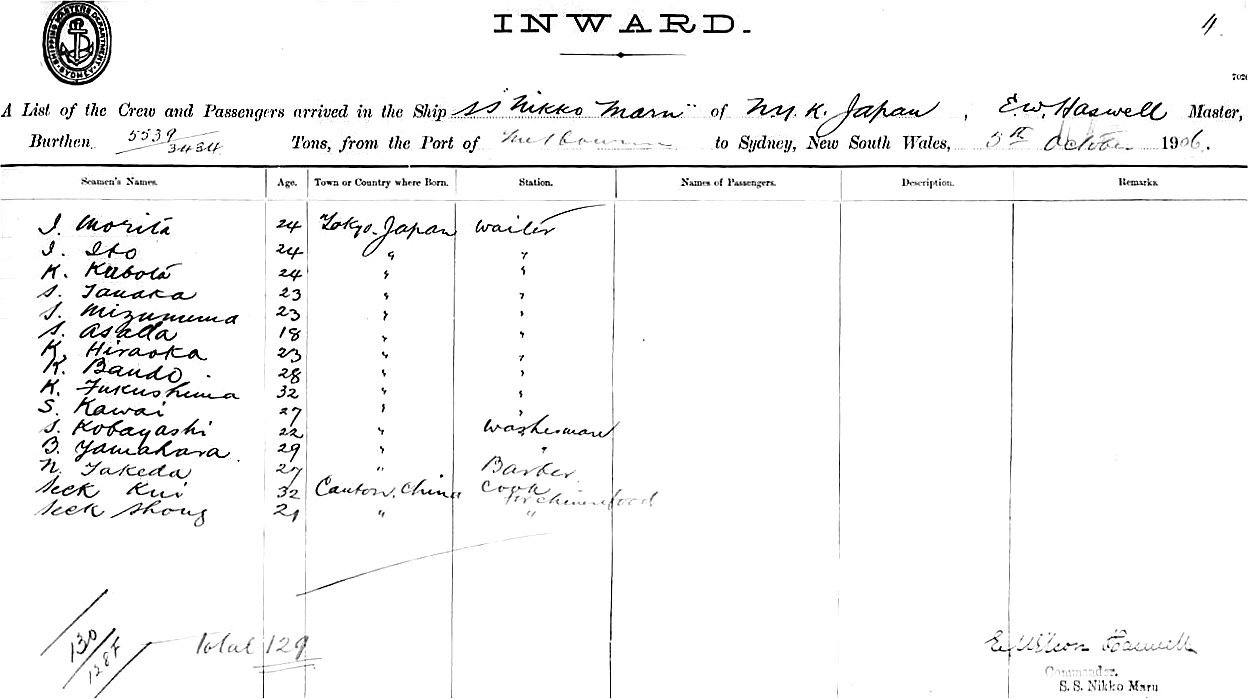 SHIPPING MASTERS DEPARTMENT SYDNEY
INWARD.
4.
A List of the Crew and Passengers arrived in the Ship SS "Nikko Maru" of N.Y.K. Japan, E.W. Haswell Master,
Burthen 5539/3434 Tons, from the Port of Melbourne to Sydney, New South Wales, 5th October 1906.
Seamen's Names. Age. Town or Country where Born. Station. Names of Passengers. Description. Remarks.
I. Morita 24 Tokyo. Japan Waiter
I. Ito 24 " "
K. Kubota 24 " "
S. Tanaka 23 " "
S. Mizunuma 23 " "
S. Asada 18 " "
K. Hiraoka 23 " "
K. Bando 28 " "
K. Fukushima 32 " "
S. Kawai 27 " "
S. Kobayashi 22 " Washerman
B. Yamahara 29 " "
N. Takeda 27 " Barber
Seck Kui 32 Canton. China Cook
for Chinese food
Seck Shong 21 " "
130
128F
Total 129
Haswell
Commander.
S.S. Nikko Maru